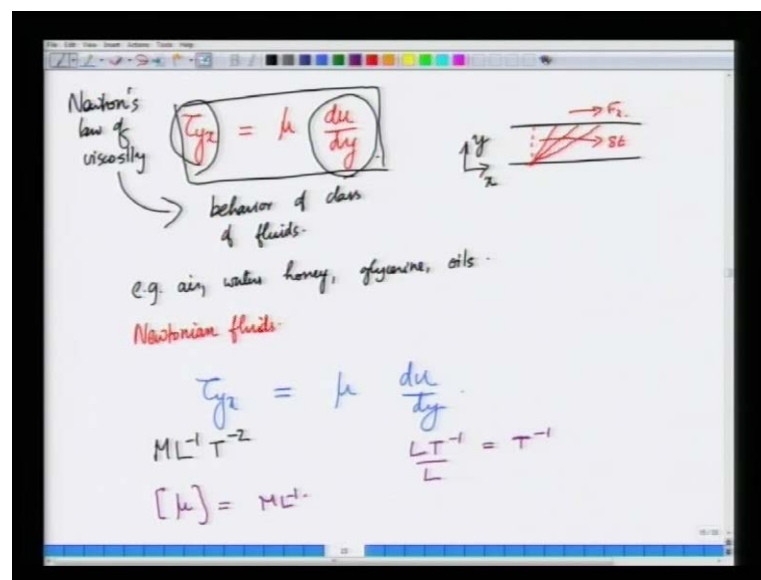 File Edit View Insert Actions Tools Help
Newton's
law of
viscosity
τyx = μ du/dy
behavior of class
of fluids.
→ Fx
δt
y
x
e.g. air, water honey, glycerine, oils.
Newtonian fluids.
τyx = μ du/dy.
ML⁻¹ T⁻²
LT⁻¹/L = T⁻¹
[μ] = ML⁻¹